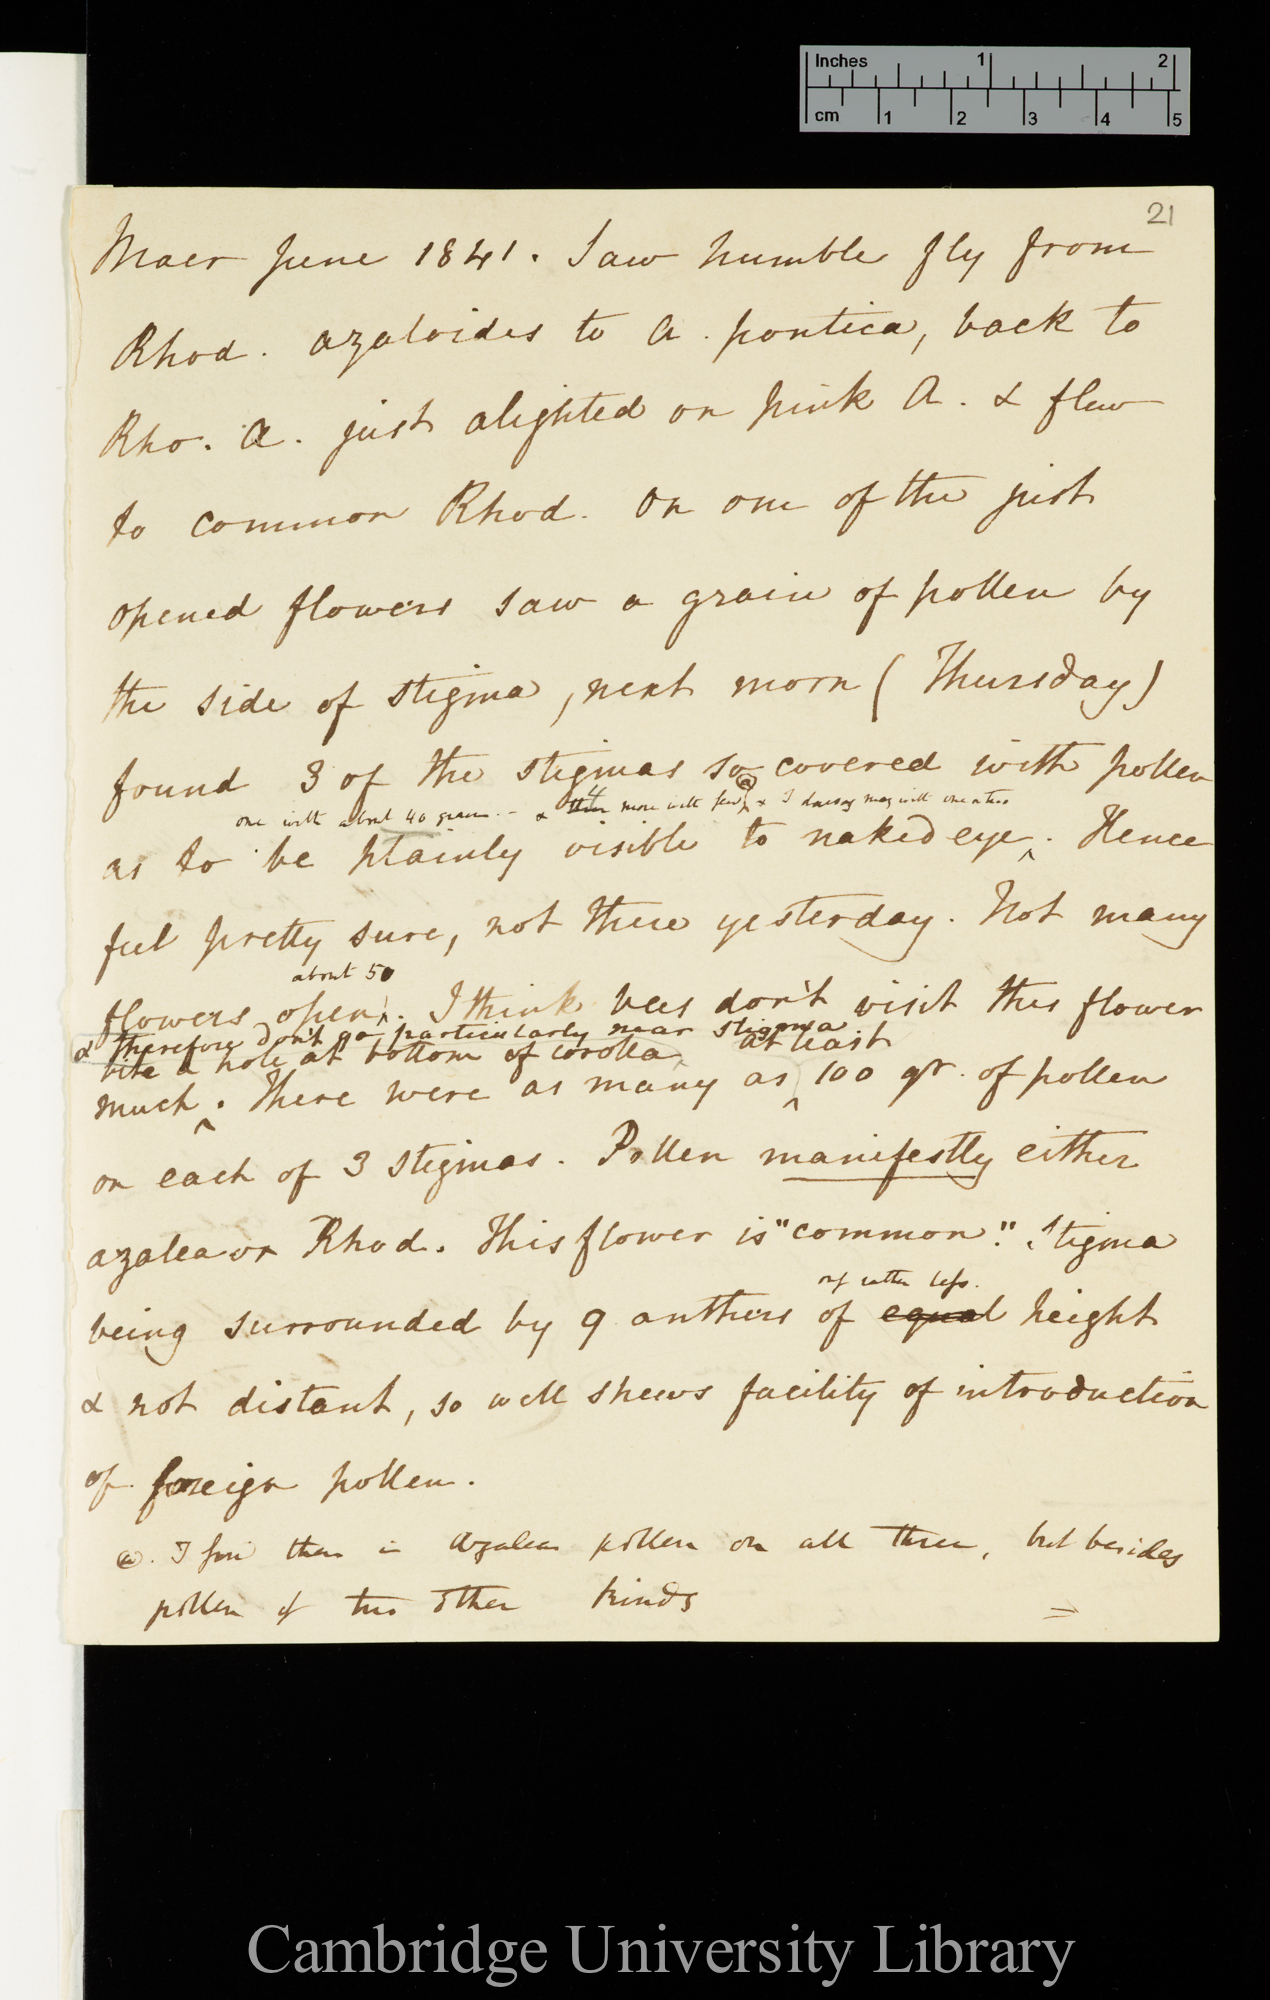 Inches 1 2
cm 1 2 3 4 5
21
Maer June 1841. Saw humble fly from
Rhod. azaloides to A. pontica, back to
Rho. A. just alighted on pink A. & flew
to common Rhod. On one of the just
opened flowers saw a grain of pollen by
the side of stigma, next morn (Thursday)
found 3 of the stigmas so covered with pollen
one with about 40 grains — & 4 more with few @ & I daresay many with one or two
as to be plainly visible to naked eye. Hence
feel pretty sure, not there yesterday. Not many
about 50
flowers open. I think bees don't visit this flower
& therefore don't go particularly near stigma.
bite a hole at bottom of corolla at least
much. There were as many as 100 gr. of pollen
on each of 3 stigmas. Pollen manifestly either
azalea or Rhod. This flower is "common". Stigma
being surrounded by 9 anthers of equal height
rather less.
& not distant, so well shews facility of introduction
of foreign pollen.
@. I find there is Azalea pollen on all three, but besides
pollen of two other kinds
Cambridge University Library